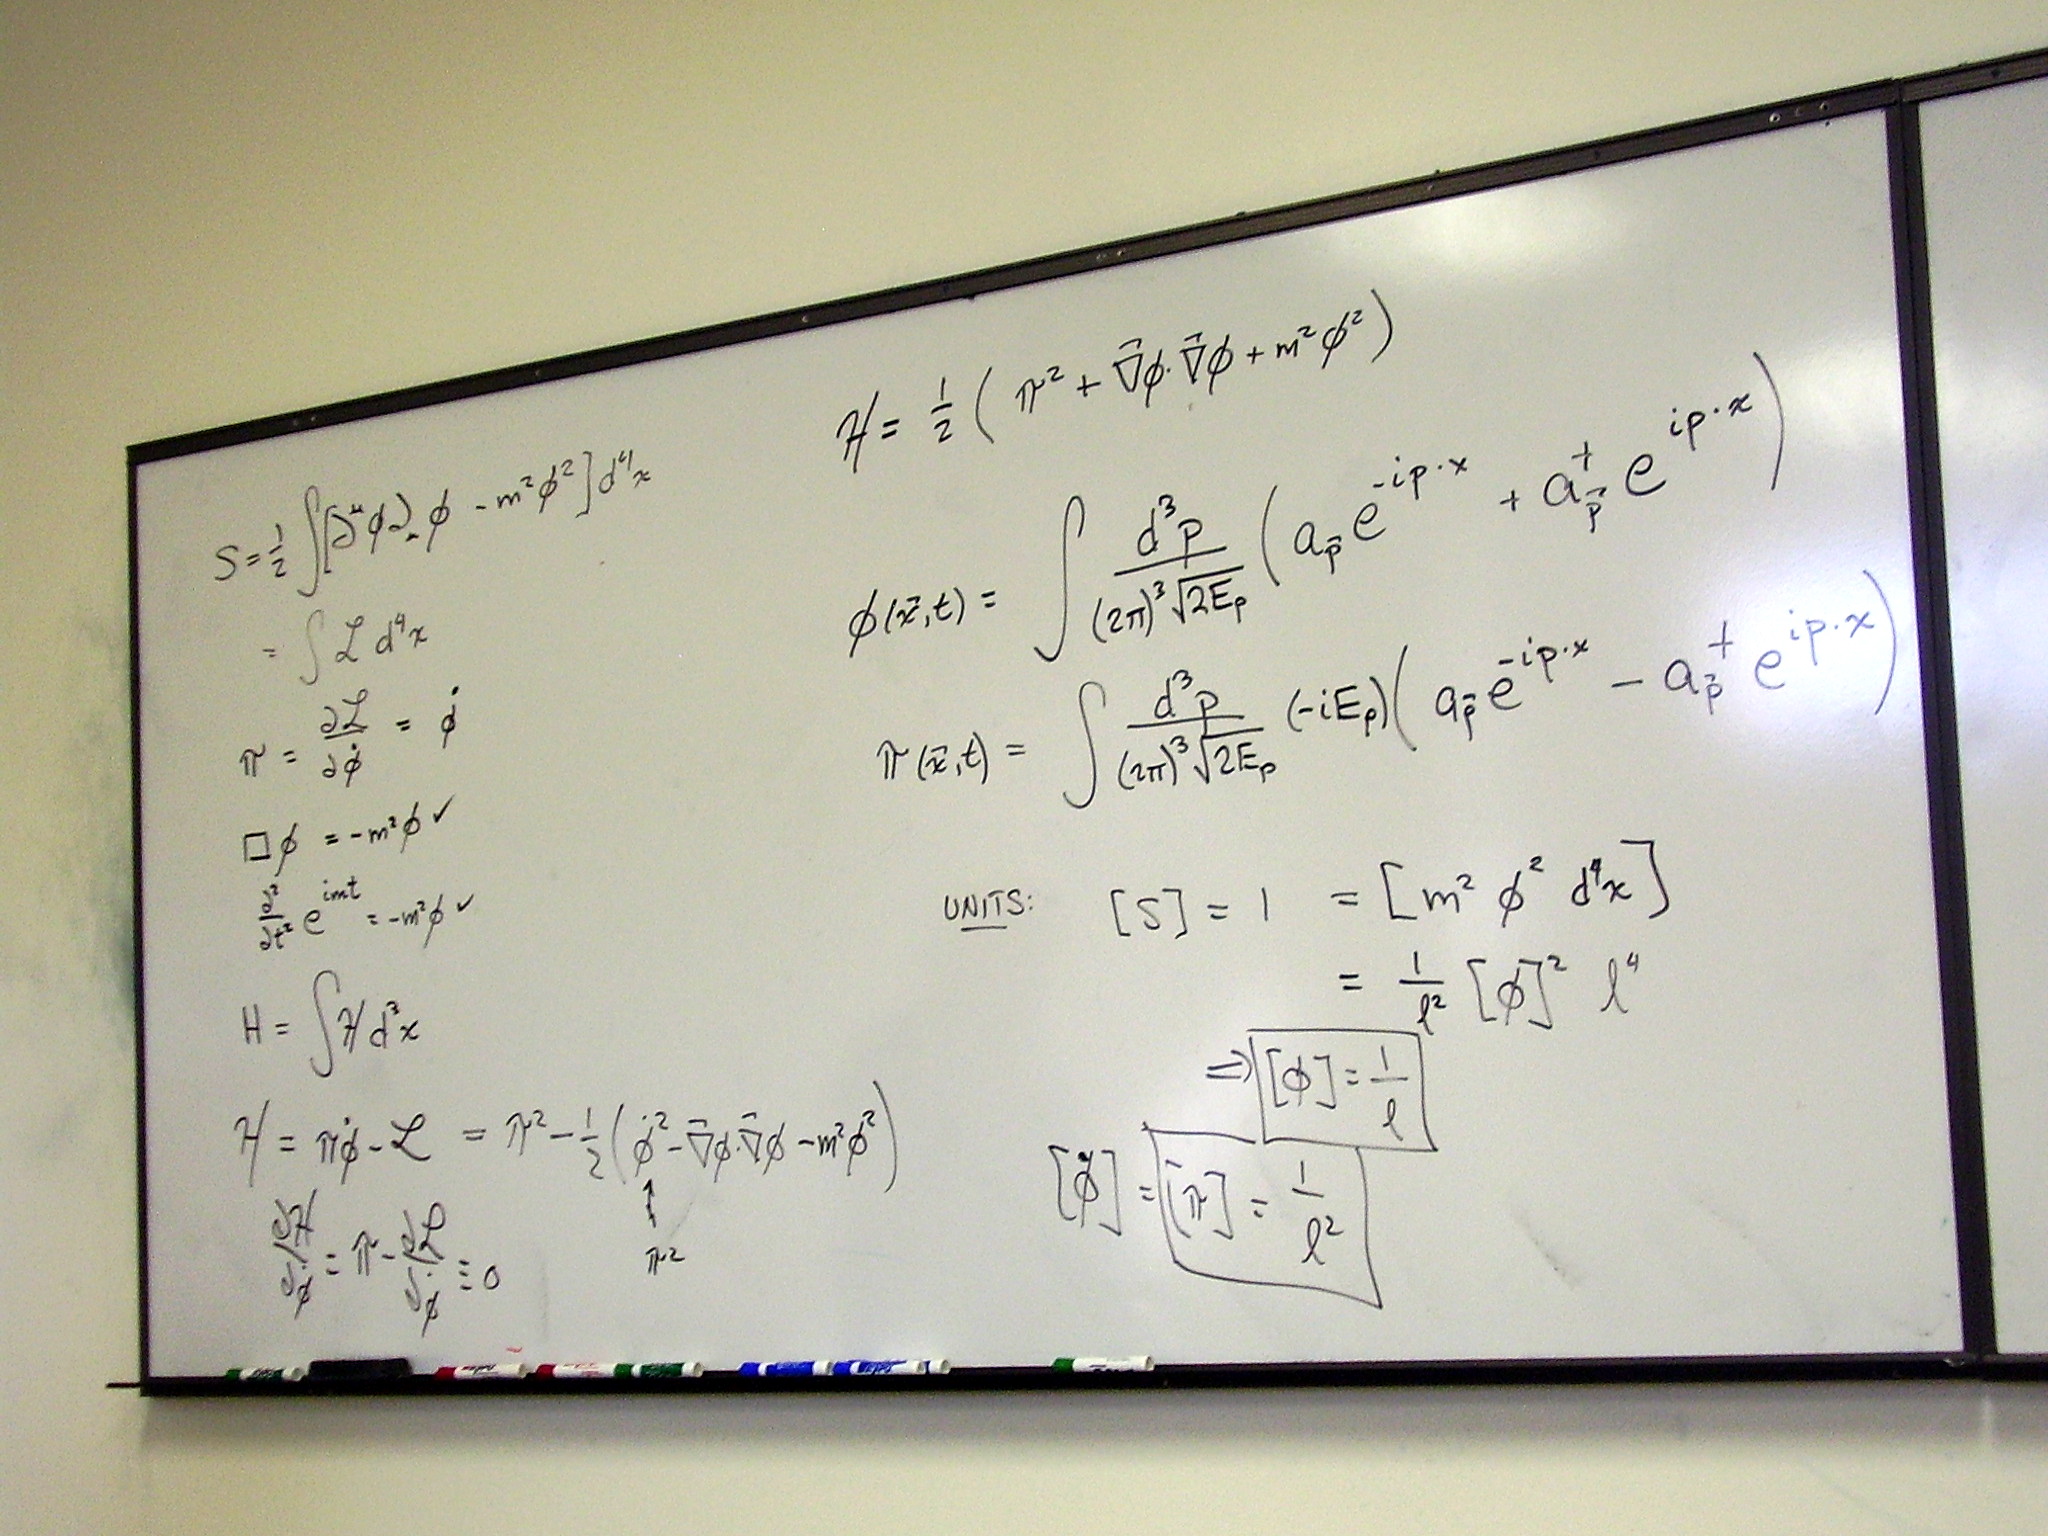 S = 1/2 ∫[∂^μ φ ∂_μ φ - m² φ²] d⁴x
= ∫ ℒ d⁴x
π = ∂ℒ/∂φ̇ = φ̇
□φ = -m²φ ✓
∂²/∂t² e^{imt} = -m²φ ✓
H = ∫ ℋ d³x
ℋ = πφ̇ - ℒ = π² - 1/2 (φ̇² - ∇⃗φ·∇⃗φ - m²φ²)
↑
π²
∂ℋ/∂φ̇ = π - ∂ℒ/∂φ̇ ≡ 0
ℋ = 1/2 (π² + ∇⃗φ·∇⃗φ + m²φ²)
φ(x⃗,t) = ∫ d³p/((2π)³√2E_p) (a_p⃗ e^{-ip·x} + a_p⃗^† e^{ip·x})
π(x⃗,t) = ∫ d³p/((2π)³√2E_p) (-iE_p)(a_p⃗ e^{-ip·x} - a_p⃗^† e^{ip·x})
UNITS: [S] = 1 = [m² φ² d⁴x]
= 1/ℓ² [φ]² ℓ⁴
⇒ [φ] = 1/ℓ
[φ̇] = [π] = 1/ℓ²